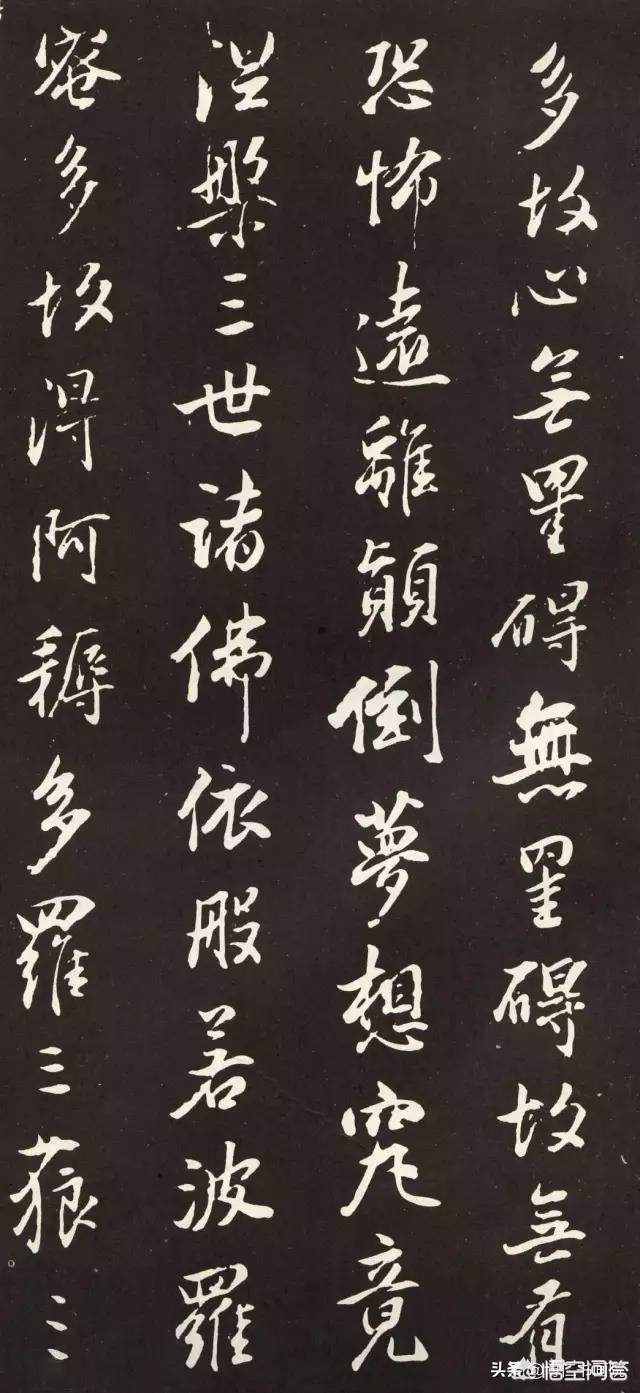 多故心無罣碍無罣碍故無有
恐怖遠離顛倒夢想究竟
涅槃三世諸佛依般若波羅
蜜多故得阿耨多羅三藐三
悟空问答
头条